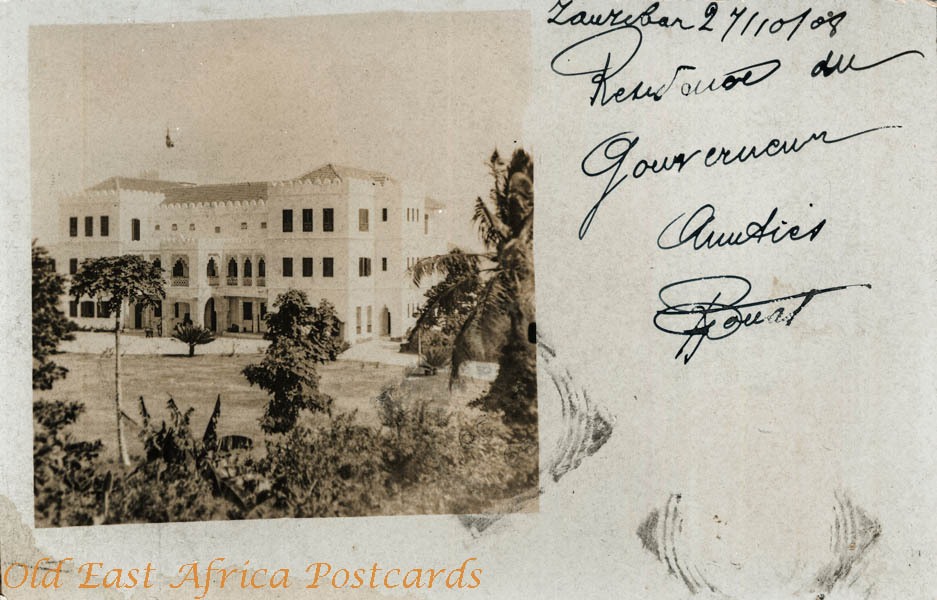 Zanzibar 27/10/08
Residence du
Gouverneur
Amitiés
Old East Africa Postcards